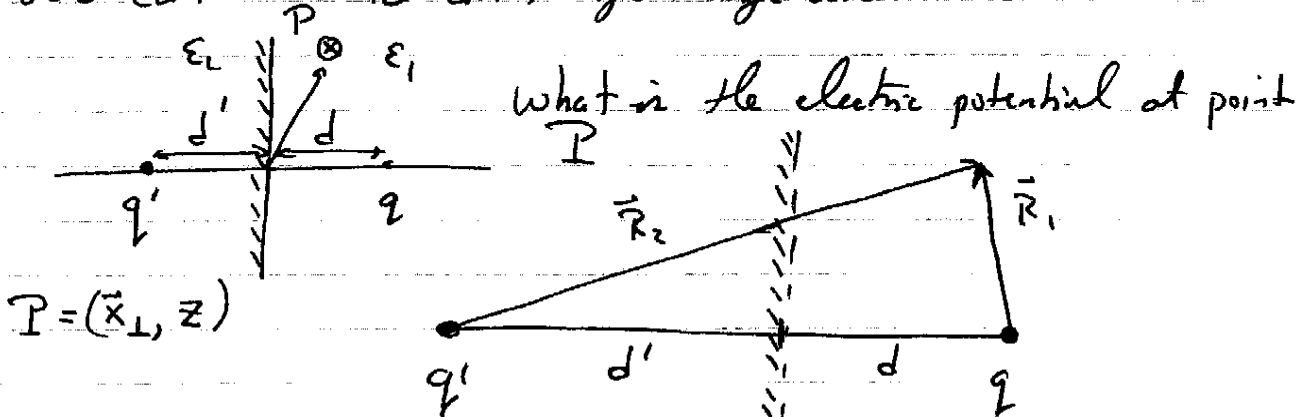 P
ε₂ ε₁
d' d
q' q
What is the electric potential at point
P
P = (x⃗⊥, z)
R⃗₂ R⃗₁
d' d
q' q